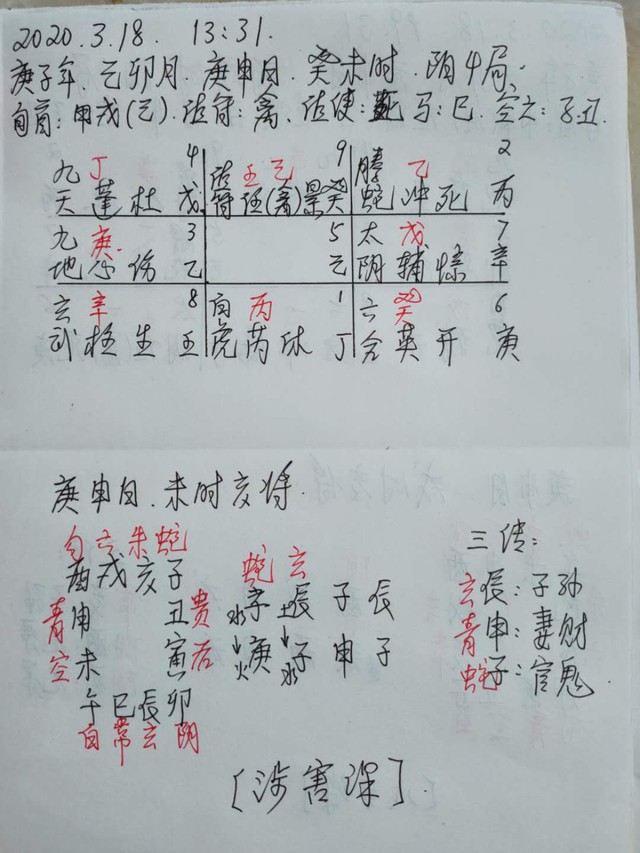 2020.3.18. 13:31.
庚子年.乙卯月.庚申日.癸未时.阴4局.
旬首:甲戌(己).值符:禽.值使:死 马:巳.空亡:子丑.
九 丁 4 值 壬己 9 螣 乙 2
天蓬杜戊 符任(禽)景癸 蛇冲死丙
九 庚 3 5 太 戊 7
地心伤乙 己 阴辅惊辛
玄 辛 8 白 丙 1 六 癸 6
武柱生壬 虎芮休丁 合英开庚
庚申日.未时亥将.
勾六朱蛇
酉戌亥子 蛇玄 三传:
青申 丑贵 水子 土辰 子 辰 玄辰:子孙
空未 寅后 火庚 水子 申 子 青申:妻财
午巳辰卯 蛇子:官鬼.
白常玄阴
[涉害课].